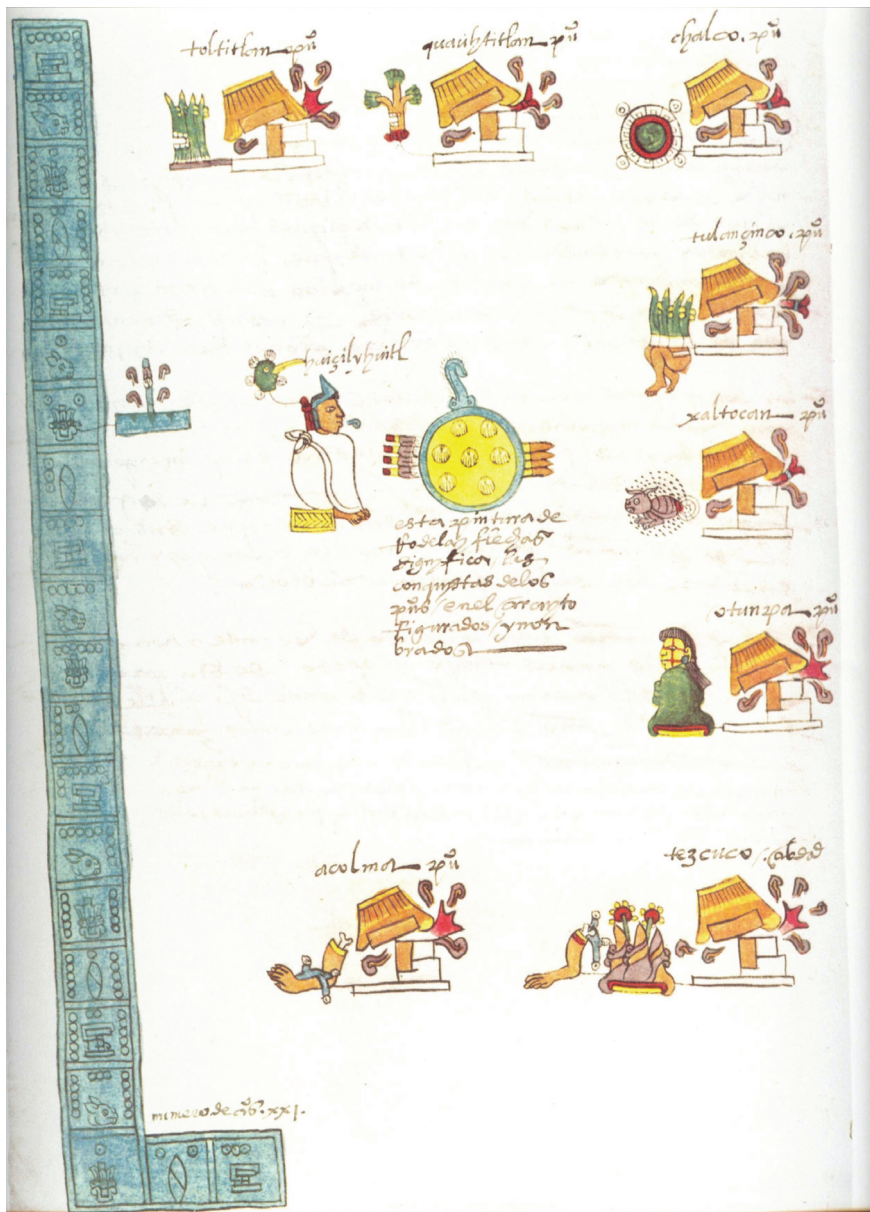 toltitlan pũ
quauhtitlan pũ
chalco. pũ
tulançinco. pũ
huiçilyhuitl
xaltocan pũ
esta pintura de
Rodela y flechas
significa / las
conquistas de los
pũs / en el
figurados / y non
brados
otunpa pũ
acolma pũ
tezcuco /
numero de años. xxj.